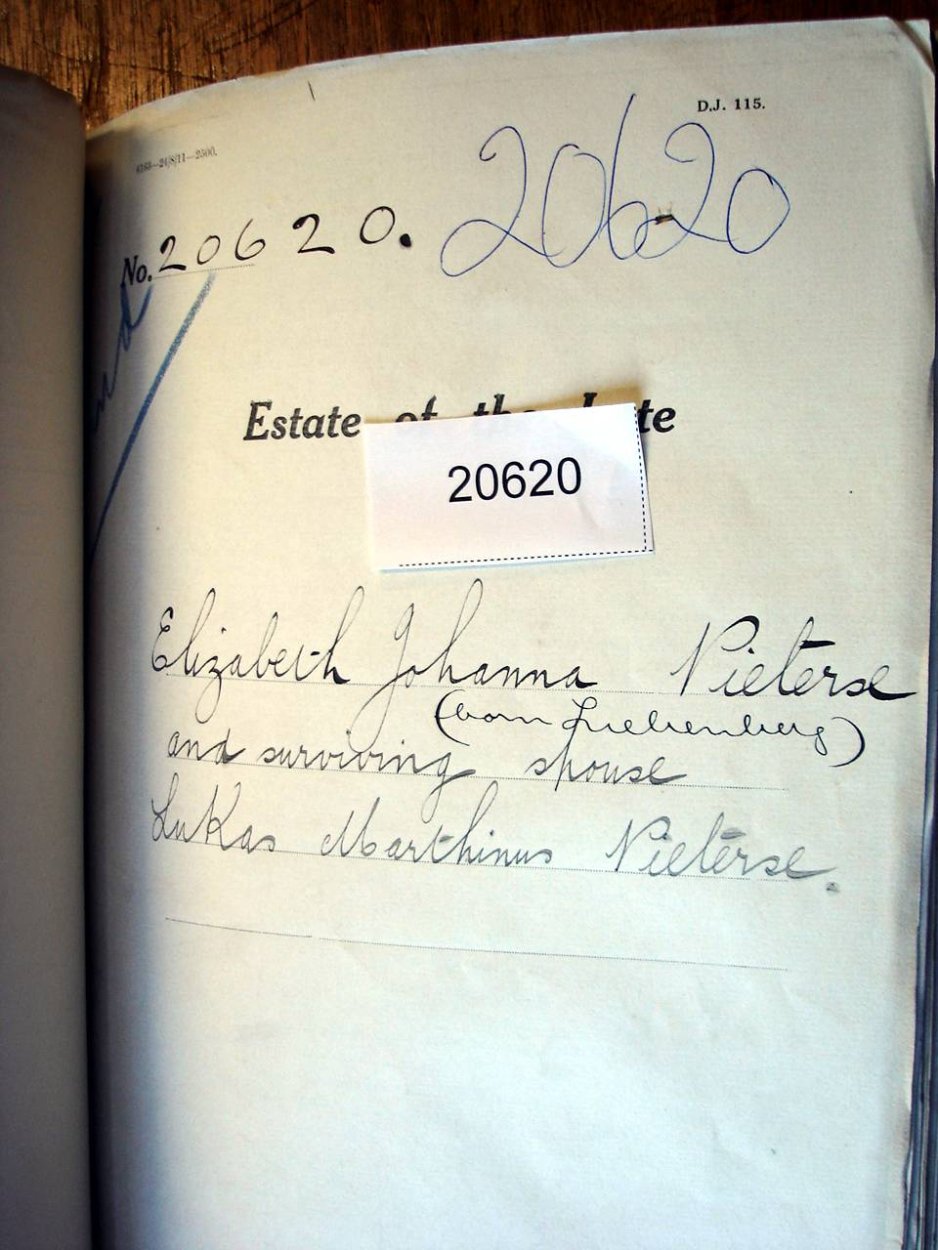 D.J. 115.
4253—24/8/11—2500.
No. 20620. 20620
Estate of the Late
20620
Elizabeth Johanna Pieterse
(born Liebenberg)
and surviving spouse
Lukas Marthinus Pieterse.